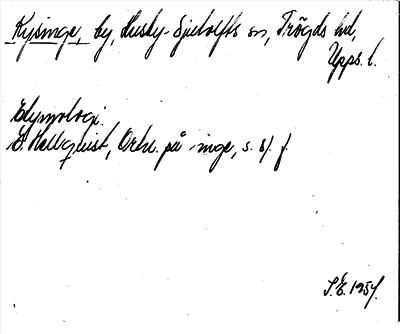 Kysinge, by, Husby-Sjutolfts sn, Trögds hd,
Upps. l.
Etymologi.
E. Hellquist, Ortn. på -inge, s. 81 f.
S.E. 1954.